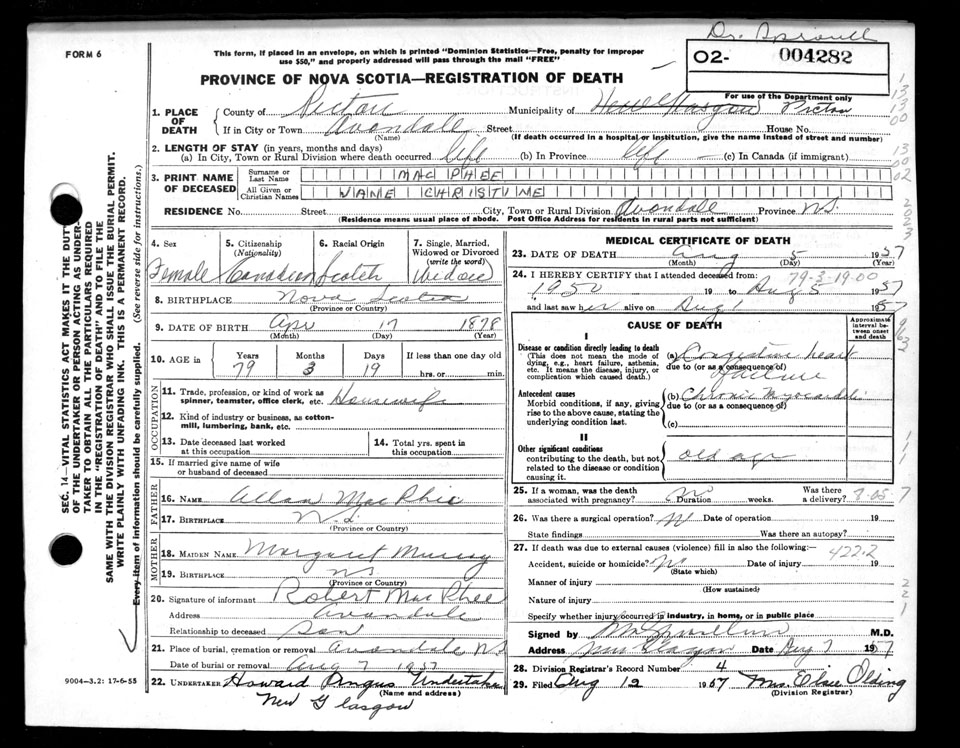 Dr.
FORM 6
This form, if placed in an envelope, on which is printed "Dominion Statistics—Free, penalty for improper
use $50," and properly addressed will pass through the mail "FREE"
O2- 004282
PROVINCE OF NOVA SCOTIA—REGISTRATION OF DEATH
For use of the Department only
1. PLACE OF DEATH
County of Pictou Municipality of New Glasgow Pictou
If in City or Town Avondale Street House No.
(Name) (If death occurred in a hospital or institution, give the name instead of street and number)
2. LENGTH OF STAY (in years, months and days)
(a) In City, Town or Rural Division where death occurred life (b) In Province life — (c) In Canada (if immigrant)
3. PRINT NAME OF DECEASED
Surname or Last Name MAC PHEE
All Given or Christian Names JANE CHRISTINE
RESIDENCE No. Street City, Town or Rural Division Avondale Province NS
(Residence means usual place of abode. Post Office Address for residents in rural parts not sufficient)
4. Sex Female
5. Citizenship (Nationality) Canadian
6. Racial Origin Scotch
7. Single, Married, Widowed or Divorced (write the word) Widow
8. BIRTHPLACE Nova Scotia
(Province or Country)
9. DATE OF BIRTH Apr 17 1878
(Month) (Day) (Year)
10. AGE in Years Months Days If less than one day old
79 3 19 hrs. or min.
OCCUPATION
11. Trade, profession, or kind of work as
spinner, teamster, office clerk, etc. Housewife
12. Kind of industry or business, as cotton-
mill, lumbering, bank, etc.
13. Date deceased last worked
at this occupation
14. Total yrs. spent in
this occupation
15. If married give name of wife
or husband of deceased
FATHER
16. NAME Allan MacPhie
17. BIRTHPLACE N.S.
(Province or Country)
MOTHER
18. MAIDEN NAME Margaret Murray
19. BIRTHPLACE NS
(Province or Country)
20. Signature of informant Robert MacPhee
Address Avondale
Relationship to deceased Son
21. Place of burial, cremation or removal Avondale NS
Date of burial or removal Aug 7 1957
22. UNDERTAKER Howard Angus Undertaker
(Name and address)
New Glasgow
MEDICAL CERTIFICATE OF DEATH
23. DATE OF DEATH Aug 5 1957
(Month) (Day) (Year)
24. I HEREBY CERTIFY that I attended deceased from: 79-3-19.00
1950 19 to Aug 5 1957
and last saw her alive on Aug 1 1957
CAUSE OF DEATH
Approximate interval between onset and death
I
Disease or condition directly leading to death
(This does not mean the mode of
dying, e.g., heart failure, asthenia,
etc. It means the disease, injury, or
complication which caused death.)
(a) Congestive heart
due to (or as a consequence of)
failure
Antecedent causes
Morbid conditions, if any, giving
rise to the above cause, stating the
underlying condition last.
(b) Chronic Myocarditis
due to (or as a consequence of)
(c)
II
Other significant conditions
contributing to the death, but not
related to the disease or condition
causing it.
old age
25. If a woman, was the death
associated with pregnancy? No Duration weeks. Was there
a delivery? 8-05 7
26. Was there a surgical operation? N Date of operation 19
State findings Was there an autopsy?
27. If death was due to external causes (violence) fill in also the following:— 422.2
Accident, suicide or homicide? No Date of injury 19
(State which)
Manner of injury
(How sustained)
Nature of injury
Specify whether injury occurred in industry, in home, or in public place
Signed by M.D.
Address New Glasgow Date Aug 7 1957
28. Division Registrar's Record Number 4
29. Filed Aug 12 1957 Mrs. Elsie Olding
(Division Registrar)
SEC. 14—VITAL STATISTICS ACT MAKES IT THE DUTY
OF THE UNDERTAKER OR PERSON ACTING AS UNDER-
TAKER TO OBTAIN ALL THE PARTICULARS REQUIRED
IN THE "REGISTRATION OF DEATH" AND TO FILE THE
SAME WITH THE DIVISION REGISTRAR WHO SHALL ISSUE THE BURIAL PERMIT.
WRITE PLAINLY WITH UNFADING INK. THIS IS A PERMANENT RECORD.
Every item of information should be carefully supplied. (See reverse side for instructions.)
9004—3.2: 17-6-55